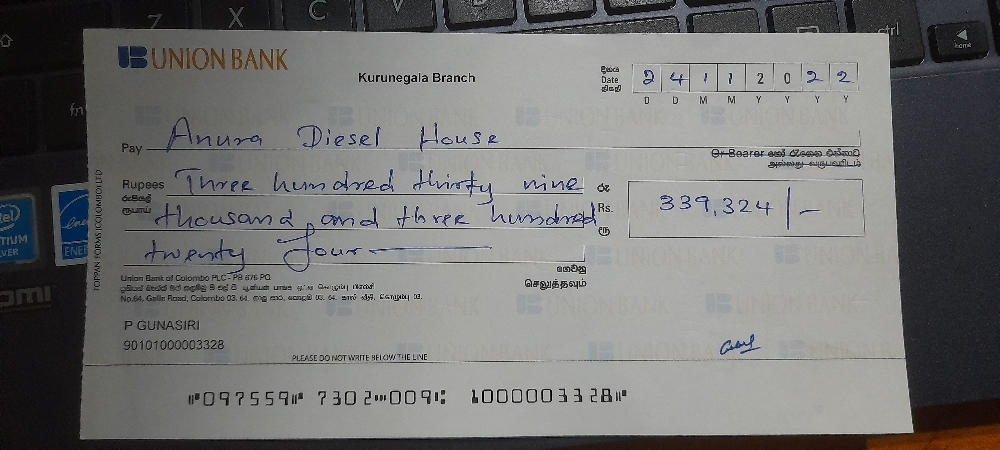 UNION BANK
Kurunegala Branch
දිනය
Date
திகதி
2 4 1 1 2 0 2 2
D D M M Y Y Y Y
Pay Anura Diesel House
Or Bearer හෝ රැගෙන එන්නාට
அல்லது வருபவரிடம்
Rupees Three hundred thirty nine
රුපියල්
ரூபாய்
thousand and three hundred
twenty four
රු
Rs.
ரூ
339,324/-
ගෙවනු
செலுத்தவும்
Union Bank of Colombo PLC - PB 676 PQ
No.64, Galle Road, Colombo 03. 64, ගාලු පාර, කොළඹ 03. 64, காலி வீதி, கொழும்பு 03.
P GUNASIRI
90101000003328
PLEASE DO NOT WRITE BELOW THE LINE
⑈097559⑈ 7302⑉009⑆ 1000003328⑈
TOPPAN FORMS (COLOMBO) LTD
Z X C V
fn
ctrl
home